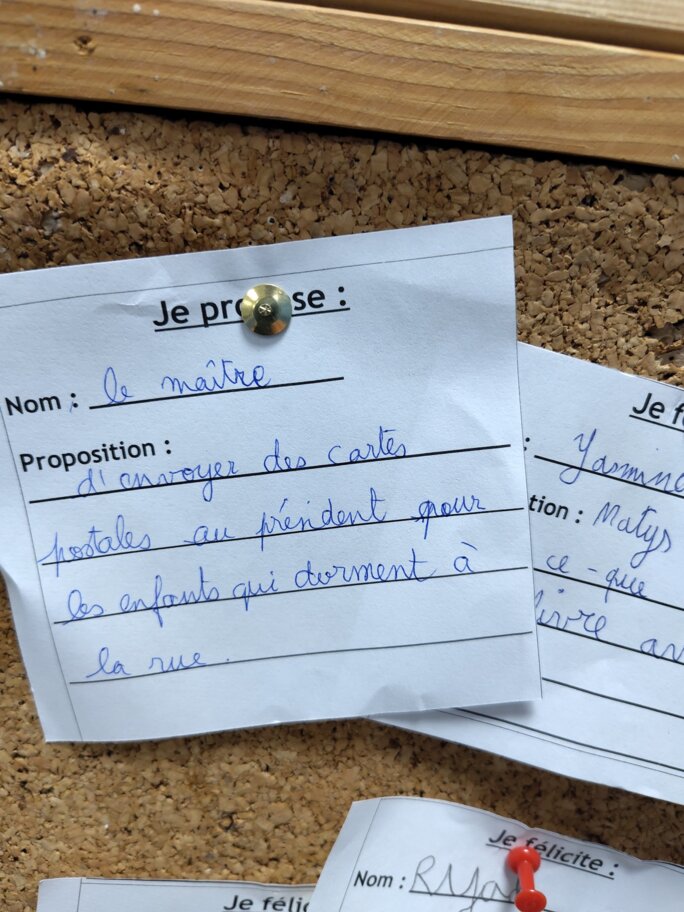 Je propose :
Nom : le maître
Proposition :
d'envoyer des cartes
postales au président pour
les enfants qui dorment à
la rue.
Je f
: Yasmine
tion : Matys
ce-que
livre av
Je félicite :
Nom : Rya
Je félic